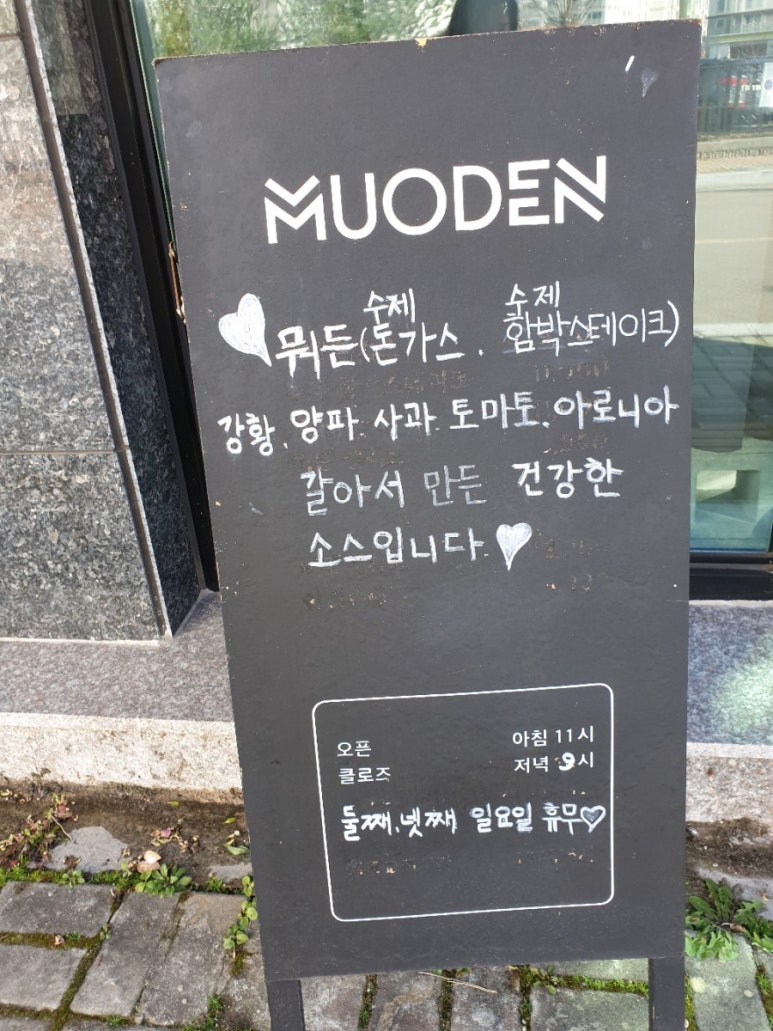 MUODEN
수제 수제
뭐든(돈가스, 함박스테이크)
강황, 양파, 사과, 토마토, 아로니아
갈아서 만든 건강한
소스입니다.
오픈 아침 11시
클로즈 저녁 9시
둘째, 넷째 일요일 휴무